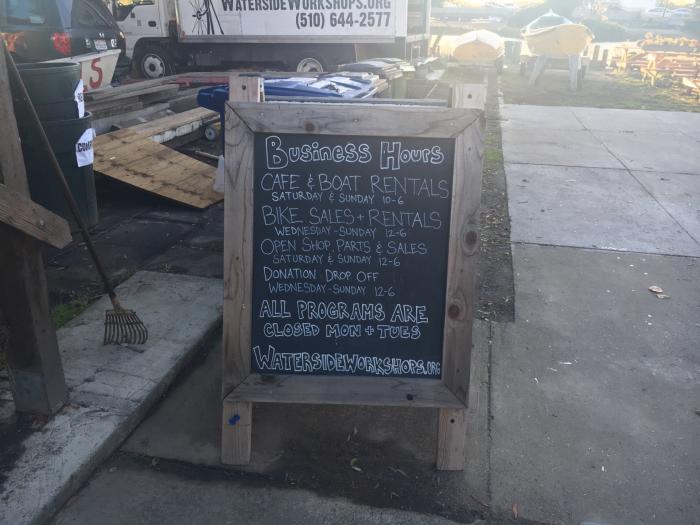 WATERSIDEWORKSHOPS.ORG
(510) 644-2577
5
Business Hours
CAFE & BOAT RENTALS
SATURDAY & SUNDAY 10-6
BIKE SALES + RENTALS
WEDNESDAY-SUNDAY 12-6
OPEN SHOP, PARTS & SALES
SATURDAY & SUNDAY 12-6
DONATION DROP OFF
WEDNESDAY-SUNDAY 12-6
ALL PROGRAMS ARE
CLOSED MON + TUES
WATERSIDEWORKSHOPS.ORG